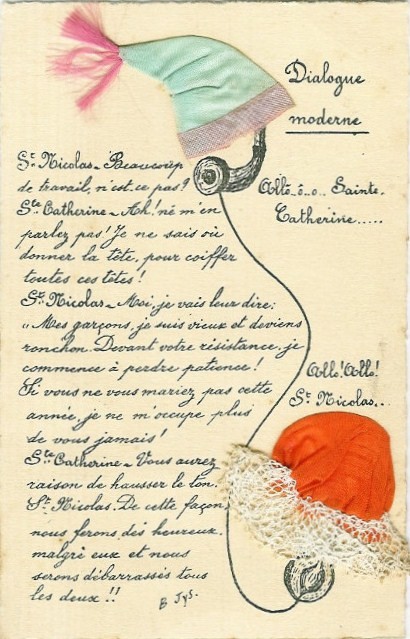 Dialogue
moderne
Allô_ô_o.. Sainte.
Catherine.....
St. Nicolas_ Beaucoup
de travail, n'est-ce pas?
Ste Catherine_ Ah! né m'en
parlez pas! Je ne sais où
donner la tête, pour coiffer
toutes ces têtes!
St. Nicolas_ Moi, je vais leur dire:
"Mes garçons, je suis vieux et deviens
ronchon. Devant votre résistance, je
commence à perdre patience!
Si vous ne vous mariez pas cette
année, je ne m'occupe plus
de vous jamais!
Ste Catherine_ Vous aurez
raison de hausser le ton.
St. Nicolas. De cette façon,
nous ferons des heureux.
malgré eux et nous
serons débarrassés tous
les deux!!
Allô! Allô!
St Nicolas...
B Jys.